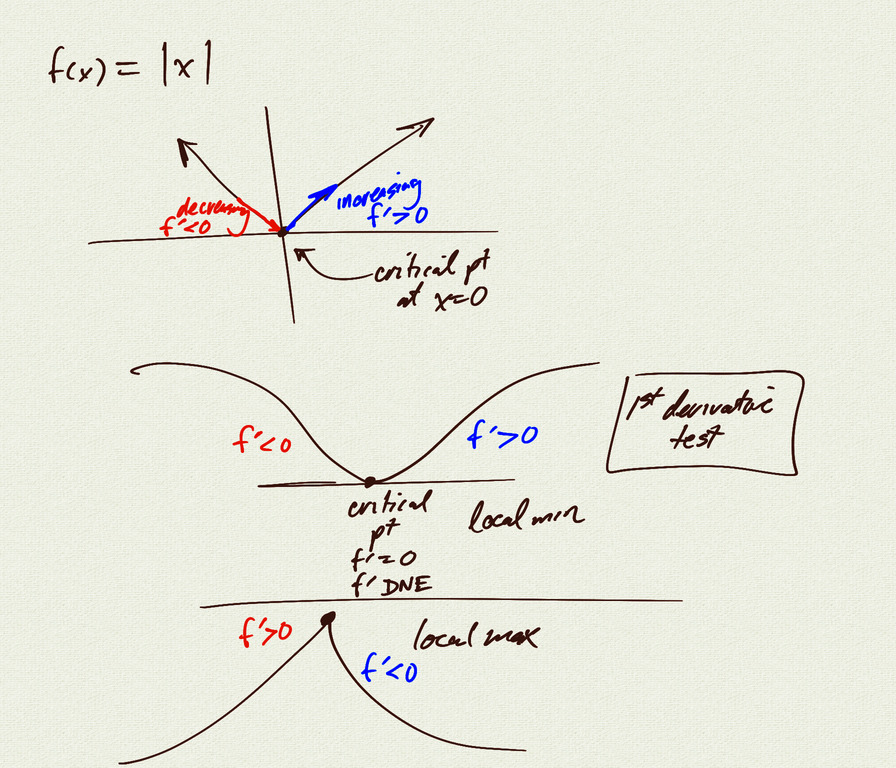 f(x) = |x|
decreasing
f'<0
increasing
f'>0
critical pt
at x=0
f'<0
f'>0
1st derivative
test
critical
pt
f'=0
f' DNE
local min
f'>0
local max
f'<0